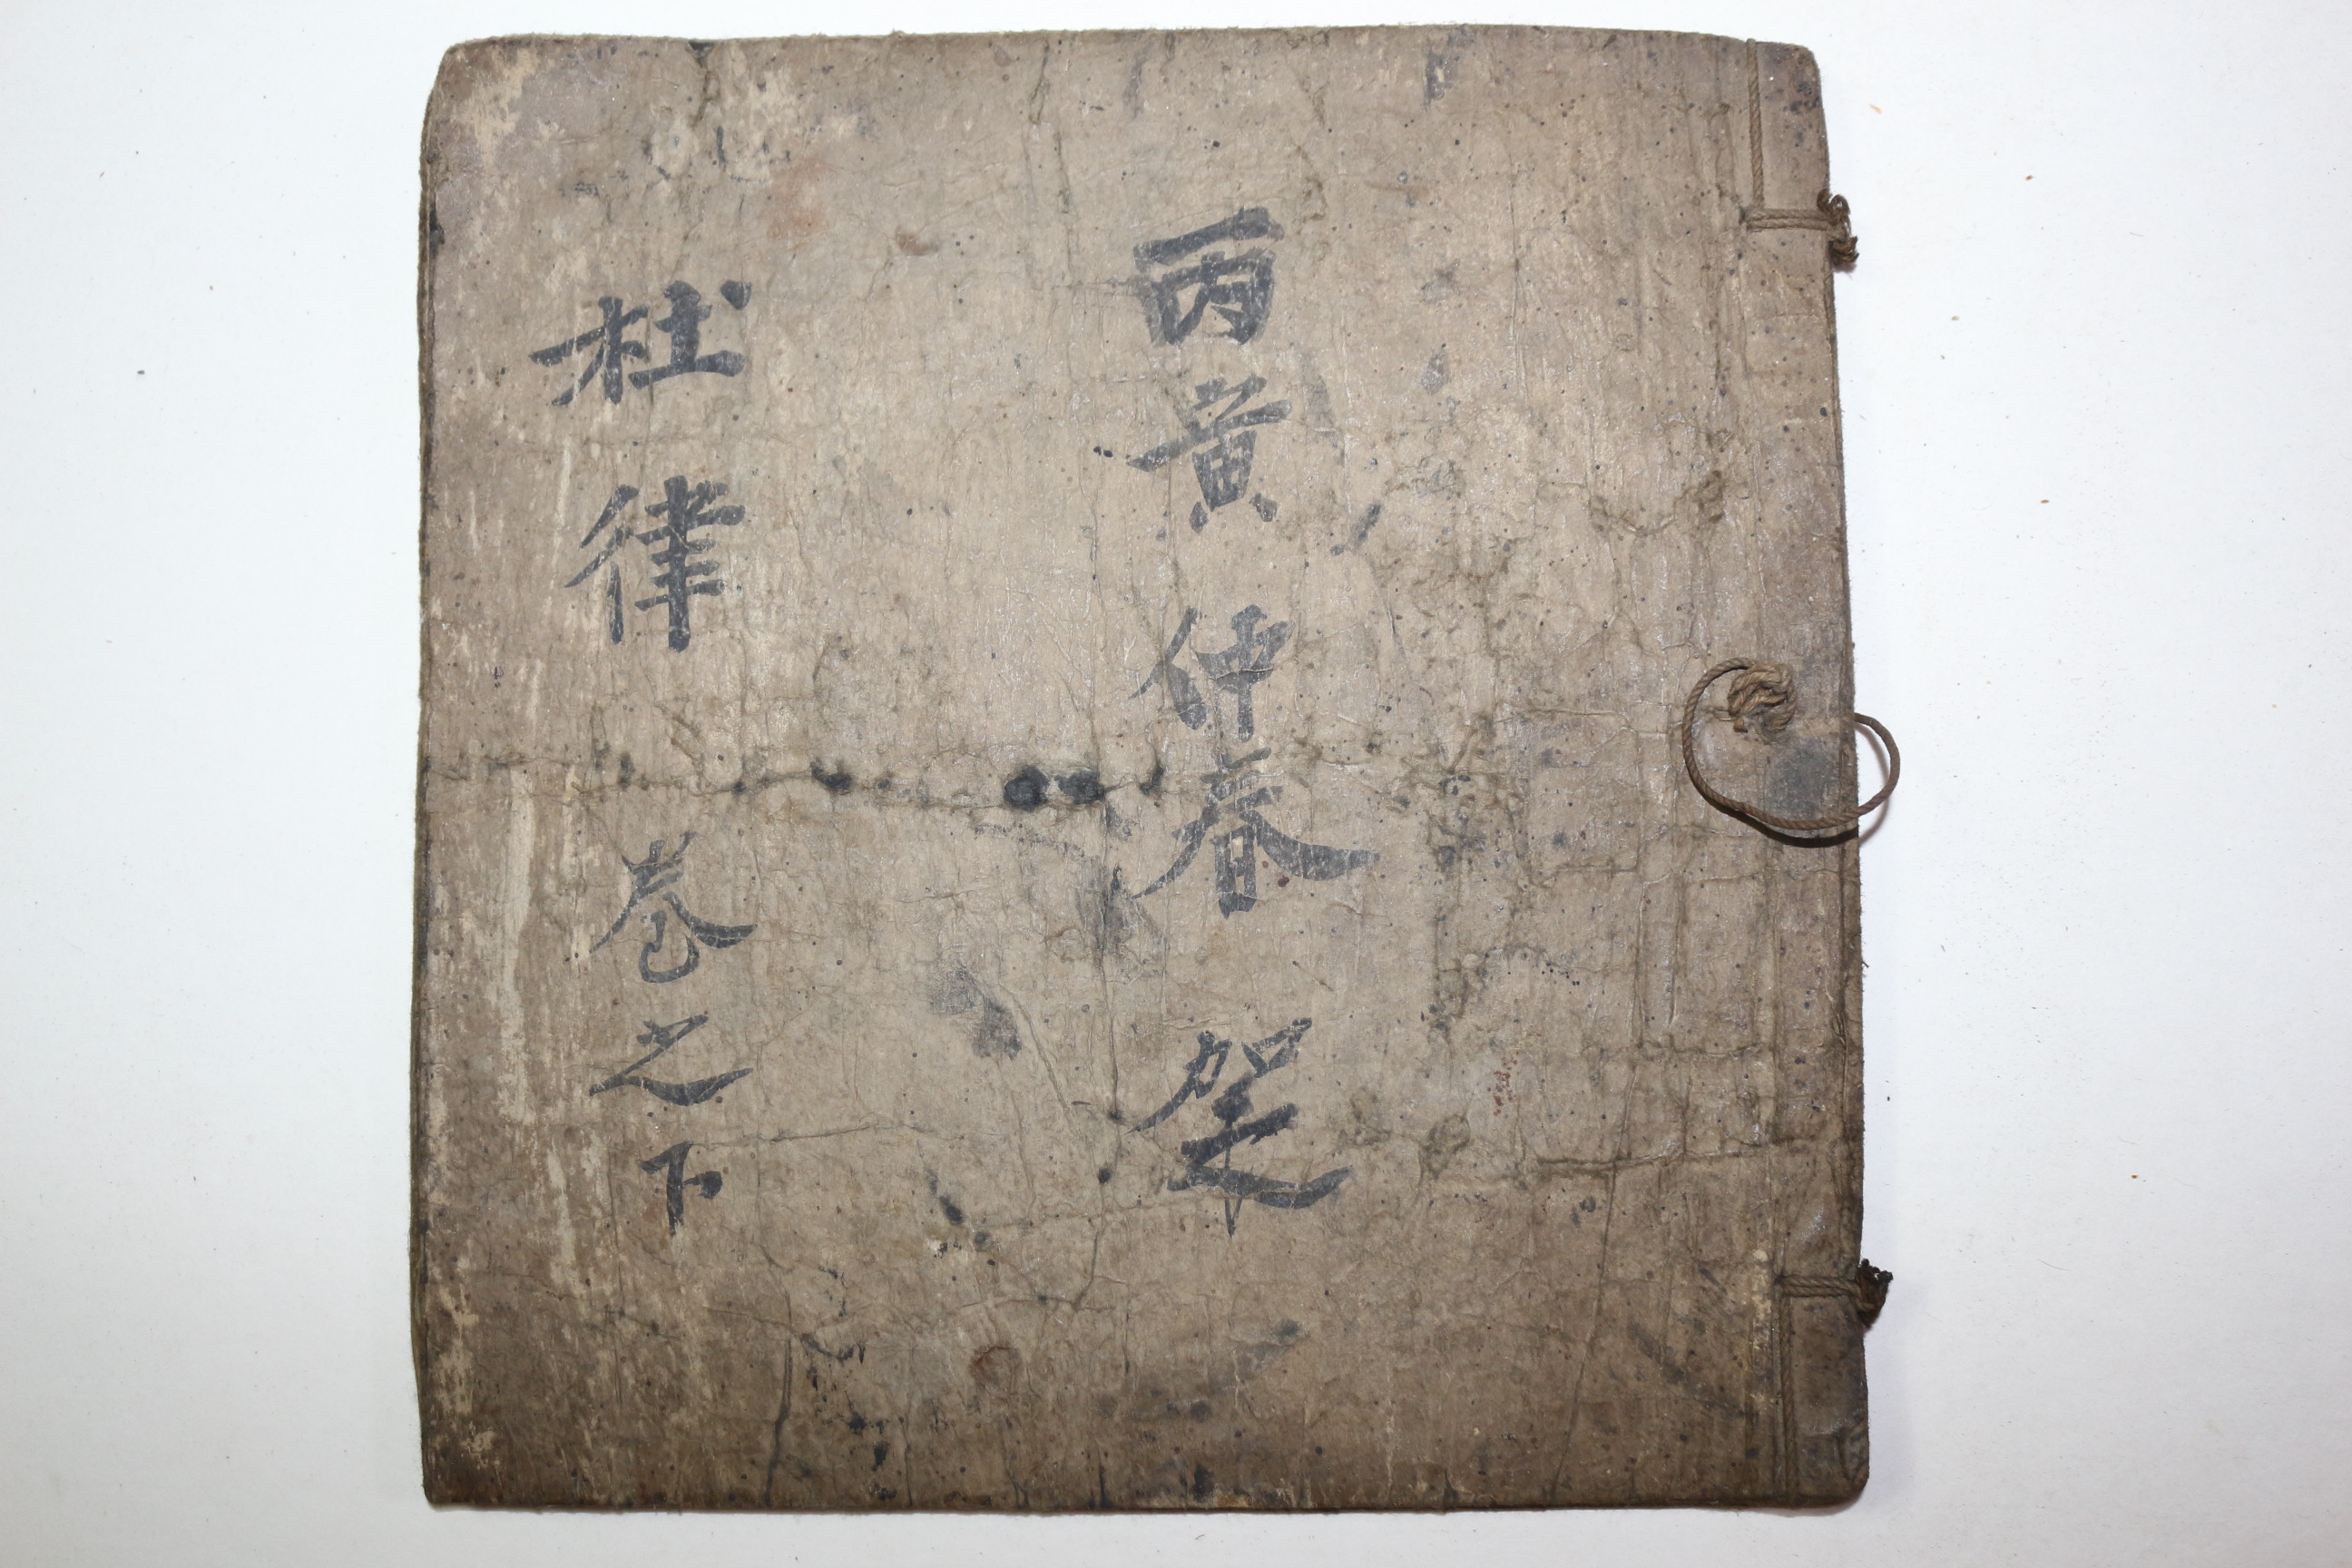 丙寅 仲春
杜律 卷之下